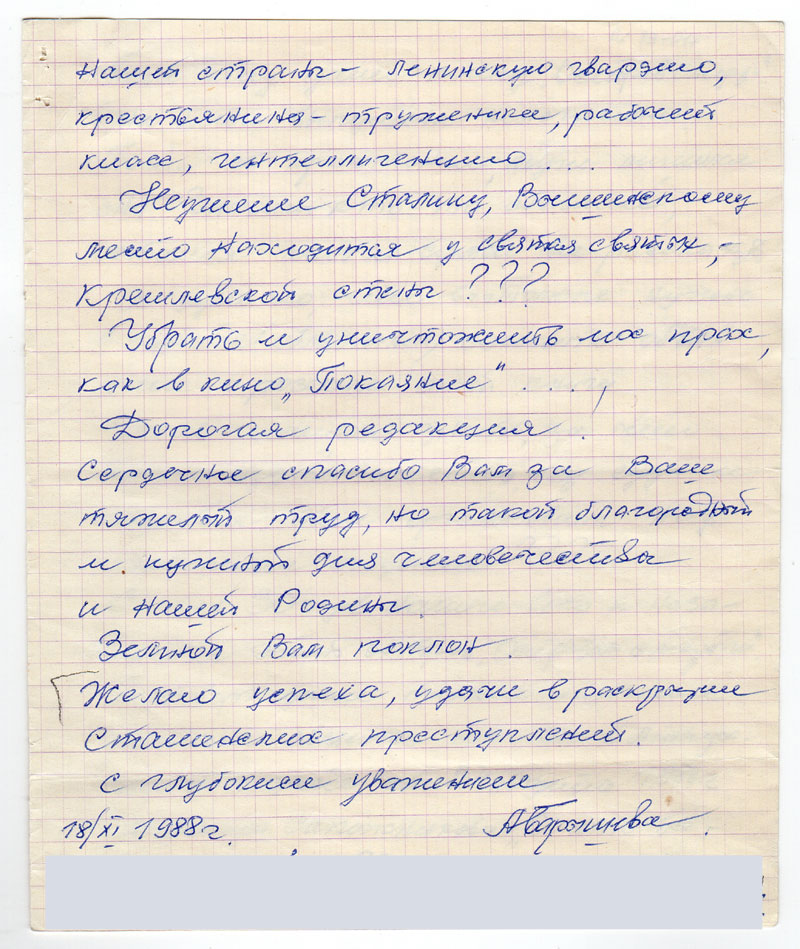 нашей страны – ленинскую гвардию,
крестьянина – труженика, рабочий
класс, интеллигенцию . . .
Неужели Сталину, Вышинскому
место находится у святая святых, –
Кремлевской стены ???
Убрать и уничтожить их прах,
как в кино „Покаяние" . . . . ,
Дорогая редакция .
Сердечное спасибо Вам за Ваш
тяжелый труд, но такой благородный
и нужный для человечества
и нашей Родины .
Земной Вам поклон .
Желаю успеха, удачи в раскрытии
Сталинских преступлений .
с глубоким уважением
18/XI 1988 г.